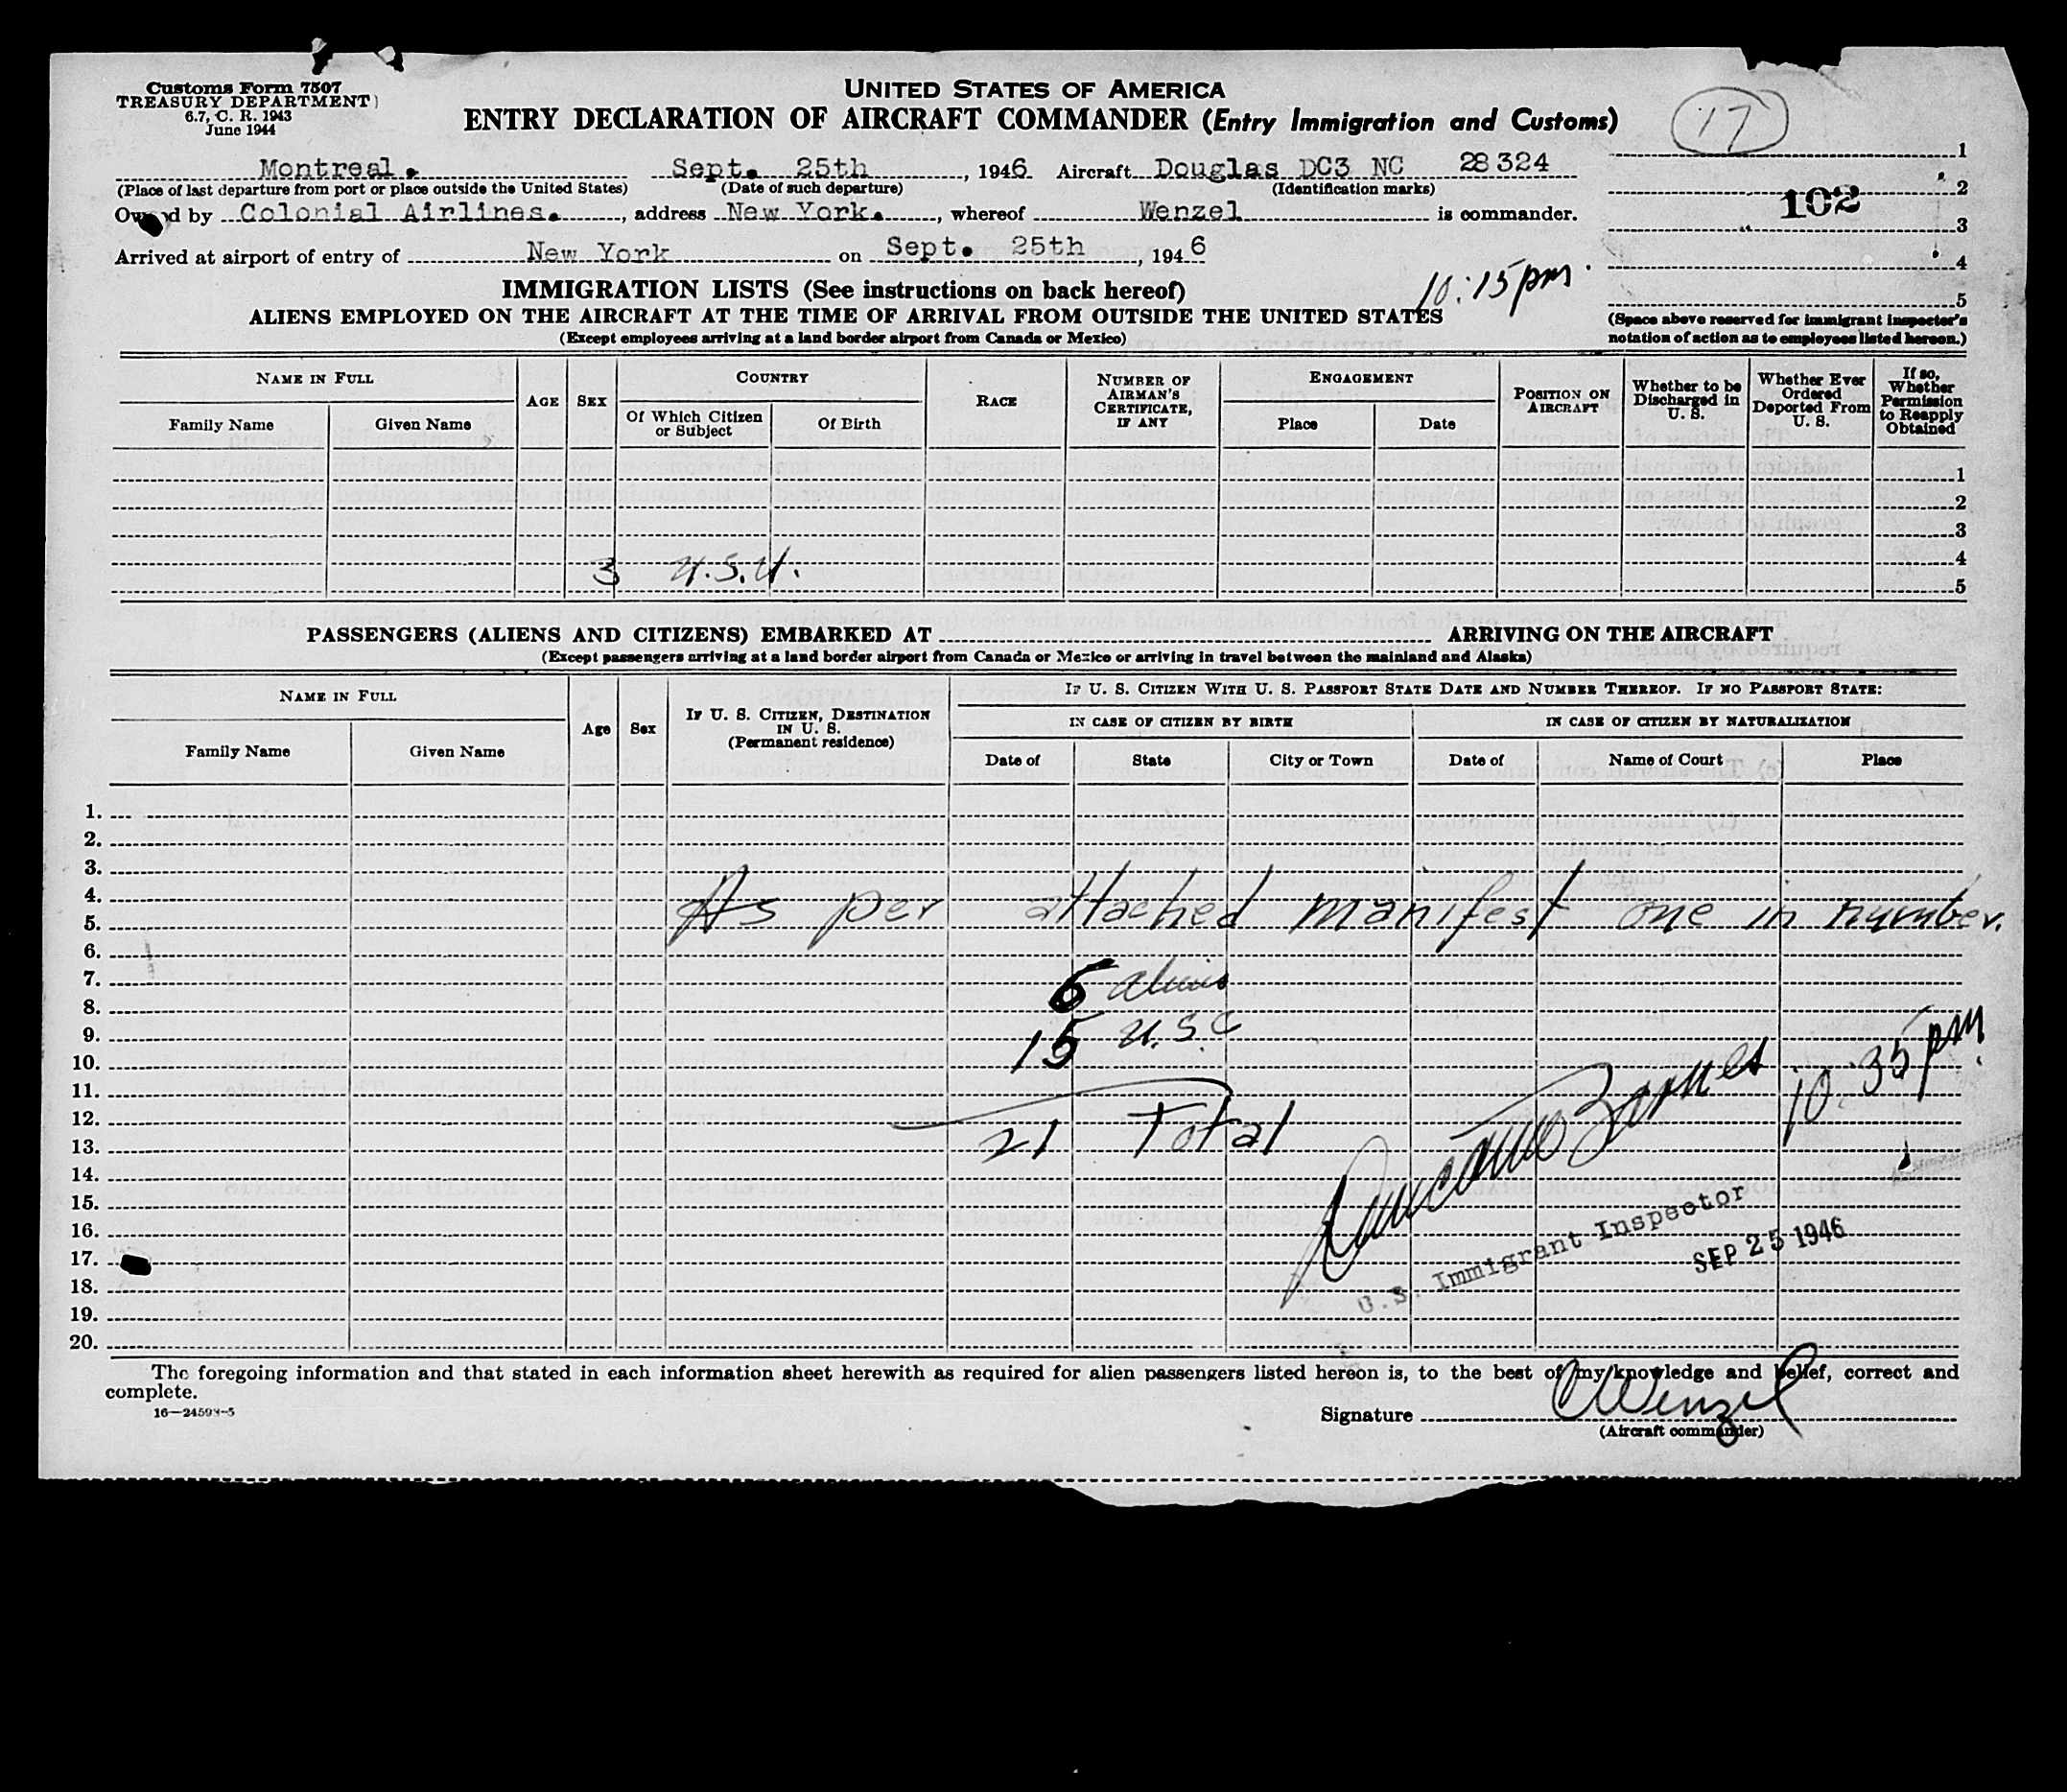 Customs Form 7507
TREASURY DEPARTMENT
6.7, C. R. 1943
June 1944
UNITED STATES OF AMERICA
ENTRY DECLARATION OF AIRCRAFT COMMANDER (Entry Immigration and Customs)
17
Montreal. Sept. 25th, 1946 Aircraft Douglas DC3 NC 28324
(Place of last departure from port or place outside the United States) (Date of such departure) (Identification marks)
Owned by Colonial Airlines., address New York., whereof Wenzel is commander.
Arrived at airport of entry of New York on Sept. 25th, 1946
1
2
102
3
4
5
(Space above reserved for immigrant inspector's
notation of action as to employees listed hereon.)
10:15pm.
IMMIGRATION LISTS (See instructions on back hereof)
ALIENS EMPLOYED ON THE AIRCRAFT AT THE TIME OF ARRIVAL FROM OUTSIDE THE UNITED STATES
(Except employees arriving at a land border airport from Canada or Mexico)
NAME IN FULL AGE SEX COUNTRY RACE NUMBER OF AIRMAN'S CERTIFICATE, IF ANY ENGAGEMENT POSITION ON AIRCRAFT Whether to be Discharged in U. S. Whether Ever Ordered Deported From U. S. If so, Whether Permission to Reapply Obtained
Family Name Given Name Of Which Citizen or Subject Of Birth Place Date
1
2
3
4
3 U.S.
5
PASSENGERS (ALIENS AND CITIZENS) EMBARKED AT ARRIVING ON THE AIRCRAFT
(Except passengers arriving at a land border airport from Canada or Mexico or arriving in travel between the mainland and Alaska)
NAME IN FULL Age Sex IF U. S. CITIZEN, DESTINATION IN U. S. (Permanent residence) IF U. S. CITIZEN WITH U. S. PASSPORT STATE DATE AND NUMBER THEREOF. IF NO PASSPORT STATE:
IN CASE OF CITIZEN BY BIRTH IN CASE OF CITIZEN BY NATURALIZATION
Family Name Given Name Date of State City or Town Date of Name of Court Place
1.
2.
3.
4.
As per attached manifest one in number.
5.
6.
7.
6 aliens
8.
9.
15 U.S.C
10.
10:35pm.
11.
12.
21 Total
13.
14.
Barnes
15.
U.S. Immigrant Inspector
16.
SEP 25 1946
17.
18.
19.
20.
The foregoing information and that stated in each information sheet herewith as required for alien passengers listed hereon is, to the best of my knowledge and belief, correct and
complete.
16—24598-5
Signature Wenzel
(Aircraft commander)